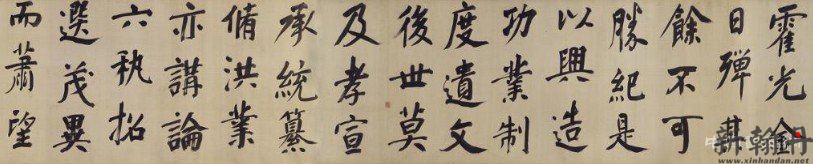 霍光金
日磾其
餘不可
勝紀是
以興造
功業制
度遺文
後世莫
及孝宣
承統纂
脩洪業
亦講論
六秇招
選茂異
而蕭望
新翰丹
www.xinhandan.net